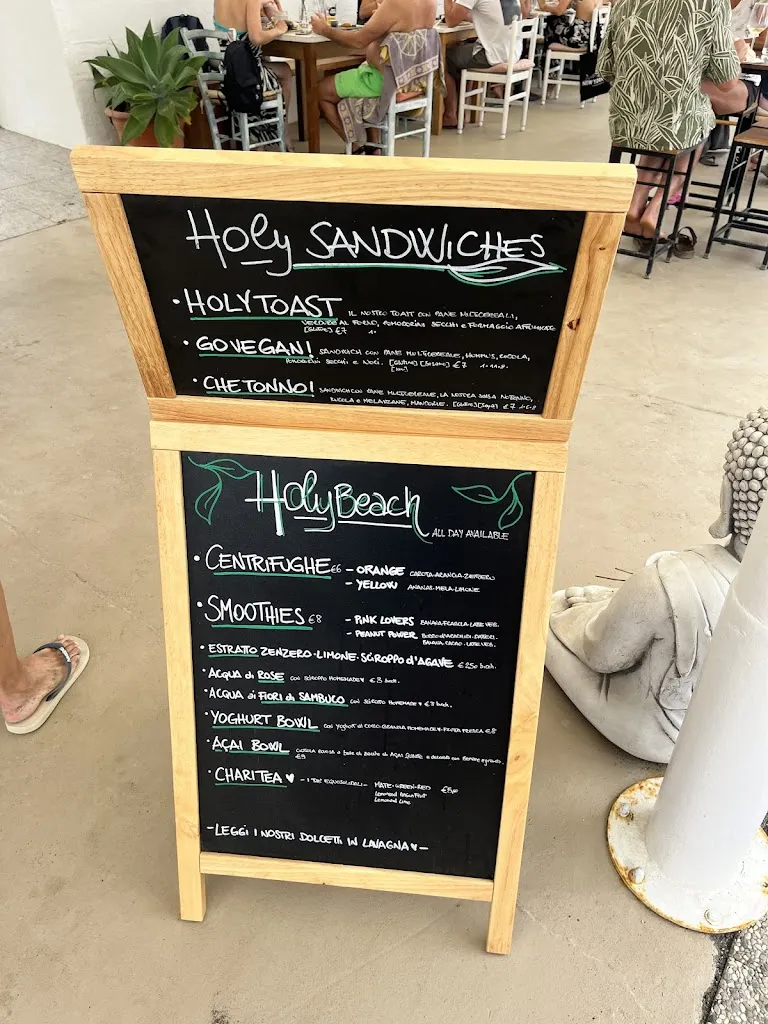 Holy SANDWICHES
• HOLY TOAST IL NOSTRO TOAST CON PANE MULTICEREALI,
VERDURE AL FORNO, POMODORINI SECCHI e FORMAGGIO AFFUMICATO
[GLUTINE] €7
• GO VEGAN! SANDWICH CON PANE MULTICEREALE, HUMMUS, RUCOLA,
POMODORINI SECCHI e NOCI. [GLUTINE] [SESAMO] €7 1-11-8.
• CHE TONNO! SANDWICH CON PANE MULTICEREALE, LA NOSTRA SALSA NOTONNO,
RUCOLA e MELANZANE, MANDORLE. [GLUTINE] [SOYA] €7 1-6-8
Holy Beach ALL DAY AVAILABLE
• CENTRIFUGHE €6 – ORANGE CAROTA-ARANCIA-ZENZERO
– YELLOW ANANAS-MELA-LIMONE
• SMOOTHIES €8 – PINK LOVERS BANANA-FRAGOLA-LATTE VEG.
– PEANUT POWER BURRO D'ARACHIDI-DATTERI.
BANANA-CACAO-LATTE VEG.
• ESTRATTO ZENZERO·LIMONE·SCIROPPO d'AGAVE
• ACQUA di ROSE con sciroppo HOMEMADE ♥ €3
• ACQUA di FIORI di SAMBUCO con sciroppo HOMEMADE ♥ €3
• YOGHURT BOWL con yoghurt di COCCO-GRANOLA HOMEMADE-FRUTTA FRESCA €8
• AÇAI BOWL
€9
• CHARITEA ♥ – I TE' EQUOSOLIDALI – MATE-GREEN-RED
Lemonaid Passion Fruit
Lemonaid Lime
–LEGGI I NOSTRI DOLCETTI IN LAVAGNA ♥–